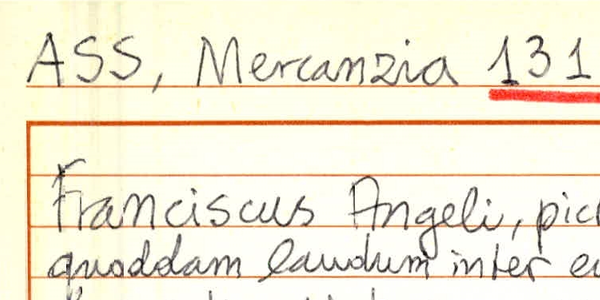 ASS, Mercanzia 131
Franciscus Angeli, pic
quoddam laudum inter